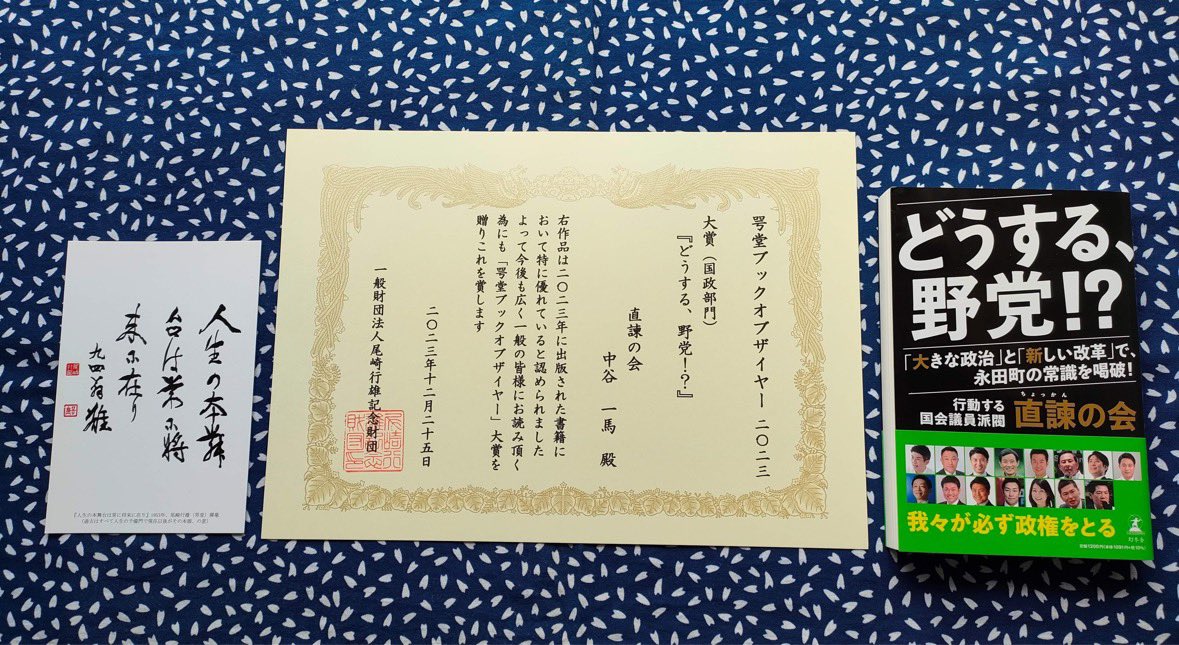 人生の本舞
台は常に将
来に在り
九四翁 雄
『人生の本舞台は常に将来に在り』1953年、尾崎行雄(咢堂)揮毫
咢堂ブックオブザイヤー 二〇二三
大賞(国政部門)
『どうする、野党!?』
直諫の会
中谷 一馬 殿
右作品は二〇二三年に出版された書籍に
おいて特に優れていると認められました
よって今後も広く一般の皆様にお読み頂く
為にも「咢堂ブックオブザイヤー」大賞を
贈りこれを賞します
二〇二三年十二月二十五日
一般財団法人尾崎行雄記念財団
どうする、
野党!?
「大きな政治」と「新しい改革」で、
永田町の常識を喝破!
行動する
国会議員派閥
ちょっかん
直諫の会
我々が必ず政権をとる
幻冬舎